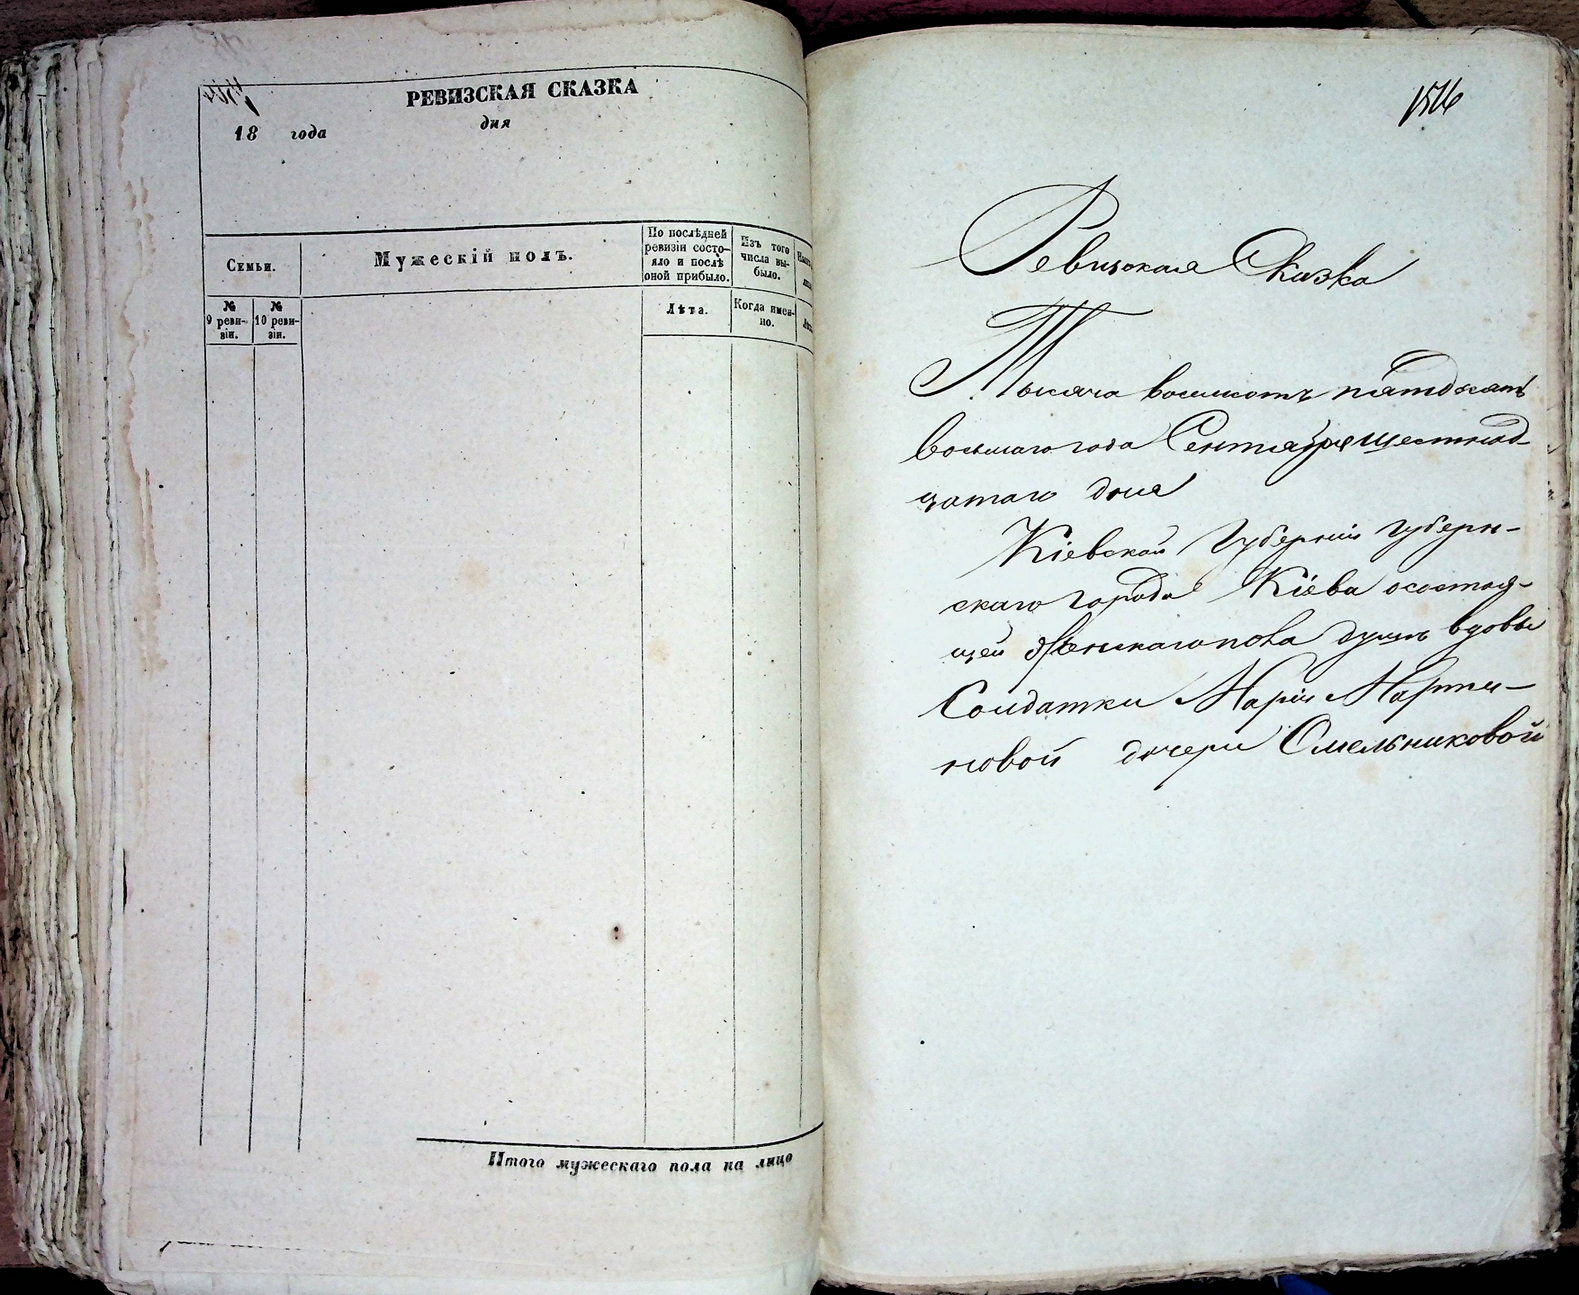 РЕВИЗСКАЯ СКАЗКА
18 года дня
Семьи.
Мужескій полъ.
По послѣдней ревизіи состо-яло и послѣ оной прибыло.
Изъ того числа вы-было.
№ 9 реви-зіи.
№ 10 реви-зіи.
Лѣта.
Когда имен-но.
Итого мужескаго пола на лицо
1516
Ревизская Сказка
Тысяча восемсотъ пятдесятъ
восьмаго года Сентября шестнад-
цатаго дня
Кіевской Губерніи губерн-
скаго города Кіева о состоя-
щей женскаго пола душъ вдовы
Солдатки Маріи Марты-
новой дочери Омельниковой